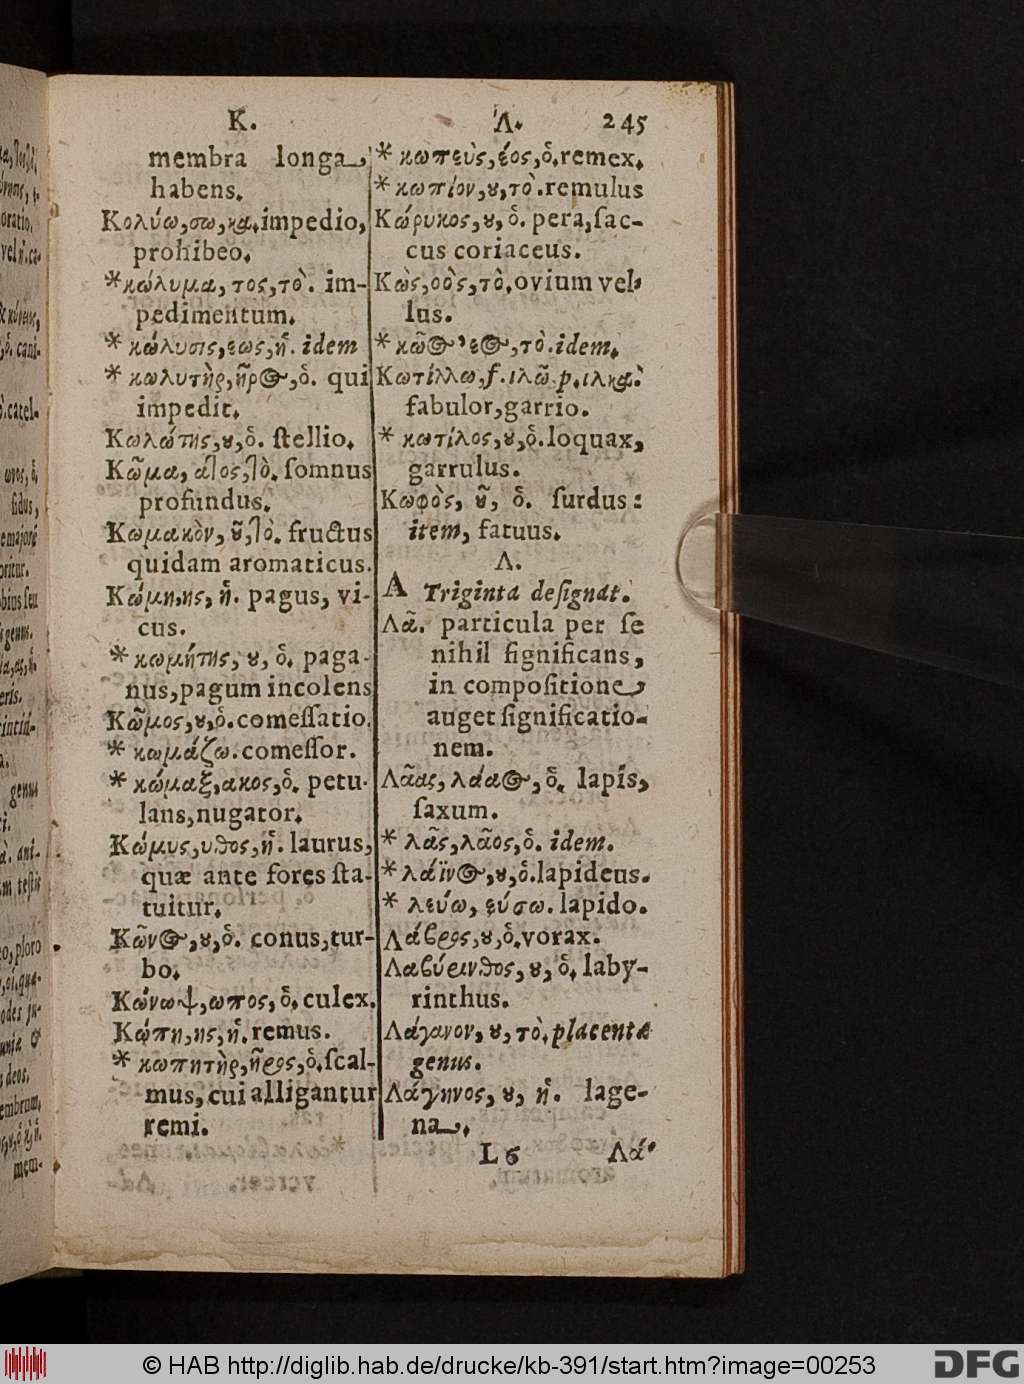 K.
Λ. 245
membra longa
habens.
Κολύω,σω,κα.impedio,
prohibeo.
*κώλυμα, τος,τὸ. im-
pedimentum.
* κώλυσις,εως,ἡ. idem
* κωλυτὴρ,ῆρος,ὁ. qui
impedit.
Κωλώτης,ου,ὁ. ſtellio.
Κῶμα, ατος,τὸ. ſomnus
profundus.
Κωμακὸν, οῦ,τὸ. fructus
quidam aromaticus.
Κώμη,ης, ἡ. pagus, vi-
cus.
* κωμήτης, ου, ὁ. paga-
nus,pagum incolens
Κῶμος,ου,ὁ.comeſſatio.
* κωμάζω.comeſſor.
* κώμαξ,ακος,ὁ. petu-
lans,nugator.
Κώμυς,υθος,ἡ. laurus,
quæ ante fores ſta-
tuitur.
Κῶνος,ου,ὁ. conus,tur-
bo.
Κώνωψ,ωπος, ὁ. culex.
Κώπη,ης,ἡ.remus.
* κωπητὴρ,ῆρος,ὁ.ſcal-
mus, cui alligantur
remi.
* κωπεὺς,έος,ὁ.remex.
* κωπίον,ου,τὸ.remulus
Κώρυκος,ου,ὁ. pera,ſac-
cus coriaceus.
Κὼς,οὸς,τὸ.ovium vel-
lus.
* κῶος,εος,τὸ.idem.
Κωτίλλω,f.ιλῶ.p.ιλκα.
fabulor,garrio.
* κωτίλος,ου,ὁ.loquax,
garrulus.
Κωφὸς, οῦ, ὁ. ſurdus:
item, fatuus.
Λ.
Λ Triginta deſignat.
Λᾶ. particula per ſe
nihil ſignificans,
in compoſitione
auget ſignificatio-
nem.
Λᾶας, λάαος, ὁ. lapis,
ſaxum.
* λᾶς,λᾶος,ὁ. idem.
* λάϊνος,ου,ὁ.lapideus.
* λεύω, εύσω.lapido.
Λάβρος,ου,ὁ.vorax.
Λαβύρινθος,ου, ὁ. laby-
rinthus.
Λάγανον,ου,τὸ.placentæ
genus.
Λάγηνος,ου, ἡ. lage-
na.
L 6 Λά-
© HAB http://diglib.hab.de/drucke/kb-391/start.htm?image=00253
DFG